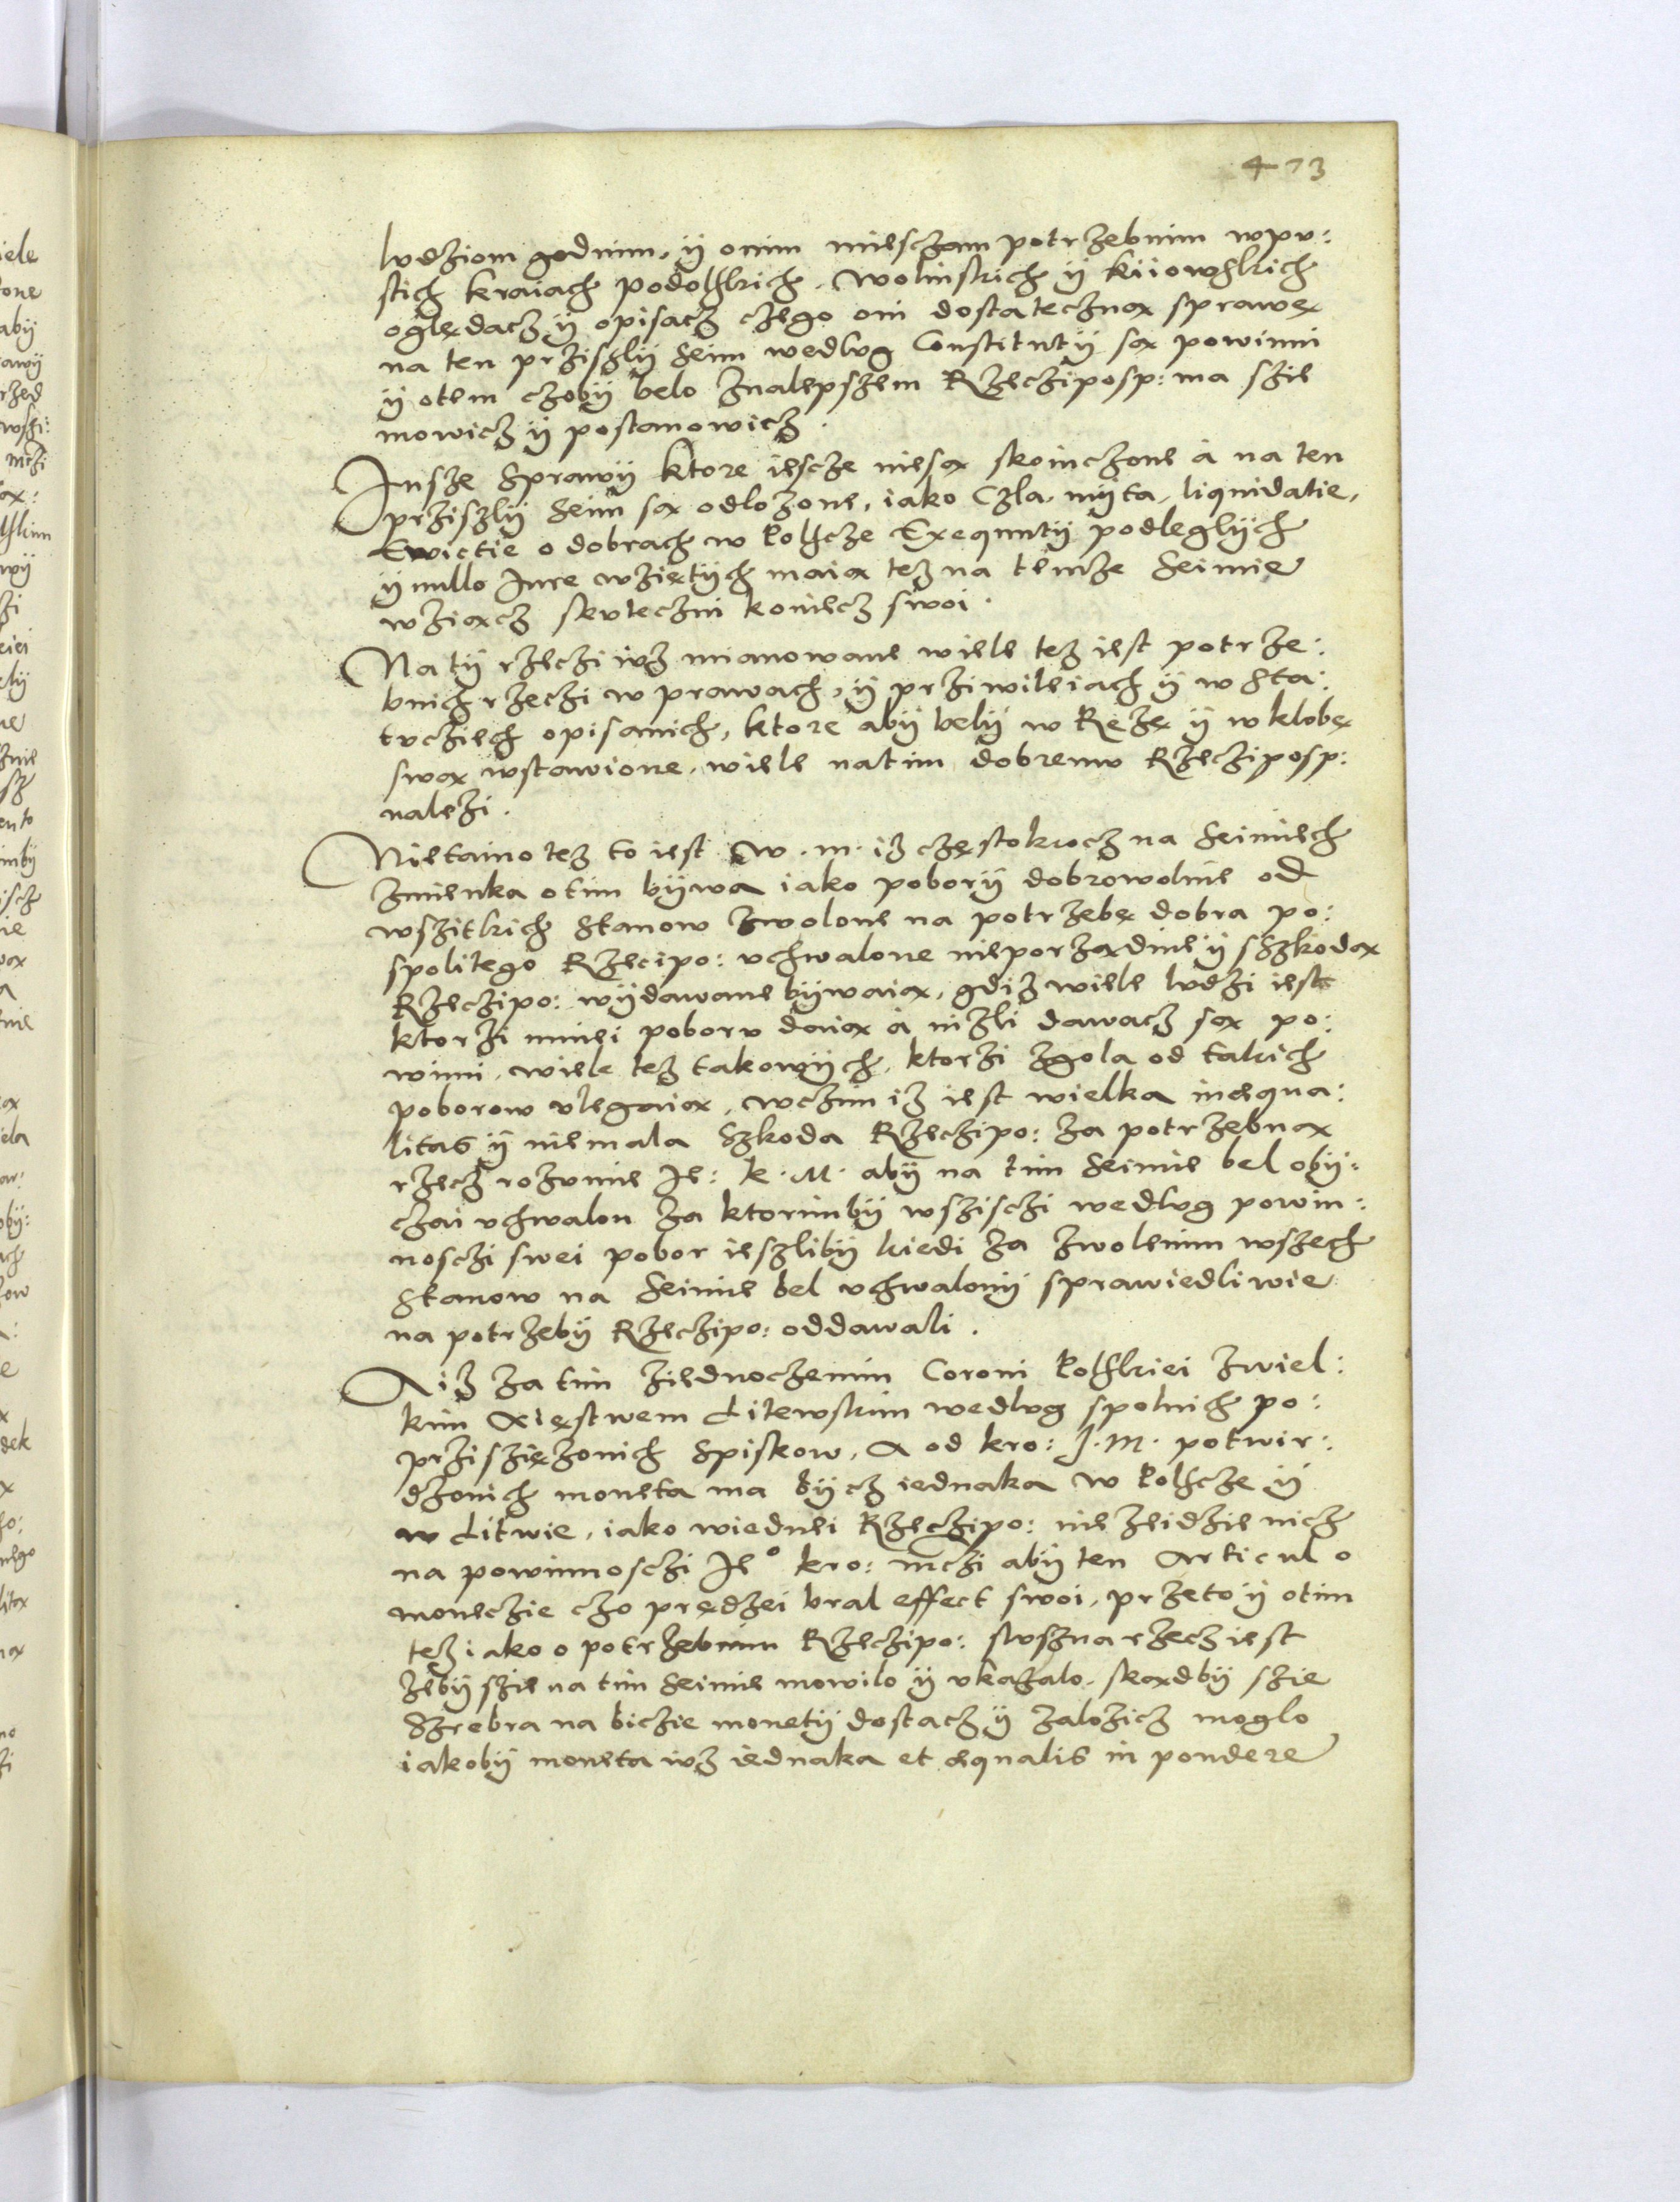 473
lvdziom godnim, ÿ onim mieisczam potrzebnim wpv:
stich kraiach podolskich, wolinskich ÿ kiiowskich
oględacz ÿ opisacz czego oni dostatecznax sprawę
na ten prziszlÿ Seim wedlvg Constitutÿ sax powinni
ÿ otem czobÿ belo znalepszem Rzeczíposp: ma szie
mowicz ÿ postanowicz.
Insze Sprawÿ ktore iescze niesax skoinczone à na ten
prziszlÿ Seim sax odlozone, iako Czla, mÿta, liquidatie,
Ewictie o dobrach w Polscze Exequutÿ podleglÿch
ÿ nullo Iure wziętÿch maiax tez na temze Seimie
wziaxcz skvteczni koniecz swoi.
Na tÿ rzeczi ivz mianowane wiele tez iest potrze:
bnich rzeczi w prawach, ÿ prziwileiach ÿ w Sta:
tvcziech opisanich, ktore abÿ belÿ w Rezę ÿ w klobę
swax wstawione, wiele natim dobremv Rzecziposp:
nalezi.
Nietaino tez to iest W. m. iz częstokrocz na Seimiech
zmienka otim bÿwa iako poborÿ dobrowolnie od
wszitkich Stanow zwolone na potrzebę dobra po:
spolitego Rzecipo: vchwalone nieporzaxdnie ÿ sSzkodax
Rzeczipo: wÿdawane bÿwaiax, gdiz wiele lvdzi iest
ktorzi mniei poborv daiax à nizli dawacz sax po:
winni, wiele tez takowÿch, ktorzi zgola od takich
poborow vlegaiax, wczim iz iest wielka inæqua:
litas ÿ niemala Szkoda Rzeczipo: za potrzebnax
rzecz rozvmie Ie: K. M. abÿ na tim Seimie bel obÿ:
czai vchwalon za ktorimbÿ wszisczi wedlvg powin:
nosczi swei pobor ieszlibÿ kiedi za zwolenim wszech
Stanow na Seimie bel vchwalonÿ sprawiedliwie
na potrzebÿ Rzeczipo: oddawali.
A iz za tim ziednoczenim Coroni Polskiei zwiel:
kim Xięstwem Litewskim wedlvg spolnich po:
prziszięzonich Spiskow, A od kro: J. M. potwir:
dzonich moneta ma bÿcz iednaka w Polscze ÿ
w Litwie, iako wiednei Rzeczipo: nie zeidzie nicz
na powinnosczi Ie° kro: mczi abÿ ten Articul o
monieczie czo prędzei bral effect swoi, przeto ÿ otim
tez iako o potrzebnim Rzeczipo: slvszna rzecz iest
zebÿ szie na tim Seimie mowilo ÿ vkazalo, skaxdbÿ szie
Szrebra na biczie monetÿ dostacz ÿ zalozicz moglo
iakobÿ moneta ivz iednaka et æqualis in pondere